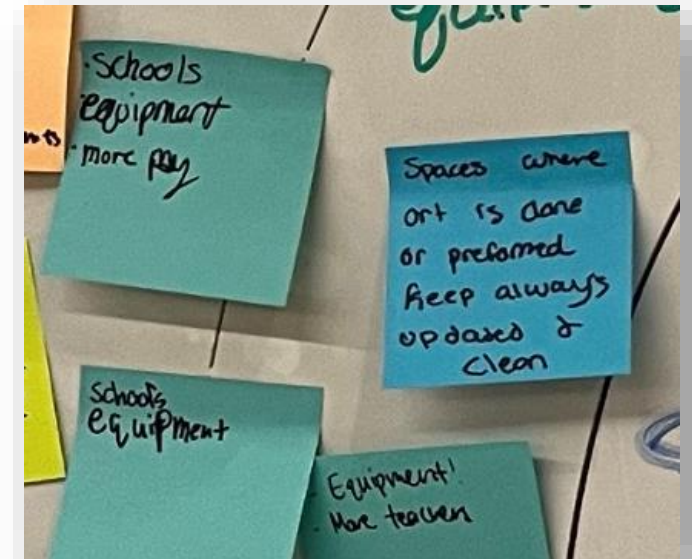 · Schools
equipment
· more pay
Spaces where
art is done
or prefomed
Keep always
updated &
clean
Schools
equipment
· Equipment!
· More teachers